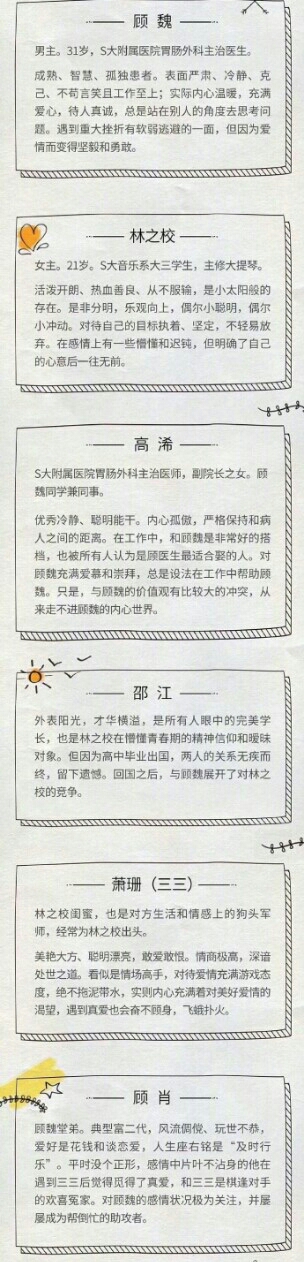 顾 魏
男主。31岁，S大附属医院胃肠外科主治医生。
成熟、智慧、孤独患者。表面严肃、冷静、克
己、不苟言笑且工作至上；实际内心温暖，充满
爱心，待人真诚，总是站在别人的角度去思考问
题。遇到重大挫折有软弱逃避的一面，但因为爱
情而变得坚毅和勇敢。
林之校
女主。21岁。S大音乐系大三学生，主修大提琴。
活泼开朗、热血善良、从不服输，是小太阳般的
存在。是非分明，乐观向上，偶尔小聪明，偶尔
小冲动。对待自己的目标执着、坚定，不轻易放
弃。在感情上有一些懵懂和迟钝，但明确了自己
的心意后一往无前。
高 浠
S大附属医院胃肠外科主治医师，副院长之女。顾
魏同学兼同事。
优秀冷静、聪明能干。内心孤傲，严格保持和病
人之间的距离。在工作中，和顾魏是非常好的搭
档，也被所有人认为是顾医生最适合娶的人。对
顾魏充满爱慕和崇拜，总是设法在工作中帮助顾
魏。只是，与顾魏的价值观有比较大的冲突，从
来走不进顾魏的内心世界。
邵 江
外表阳光，才华横溢，是所有人眼中的完美学
长，也是林之校在懵懂青春期的精神信仰和暧昧
对象。但因为高中毕业出国，两人的关系无疾而
终，留下遗憾。回国之后，与顾魏展开了对林之
校的竞争。
萧珊（三三）
林之校闺蜜，也是对方生活和情感上的狗头军
师，经常为林之校出头。
美艳大方、聪明漂亮，敢爱敢恨。情商极高，深谙
处世之道。看似是情场高手，对待爱情充满游戏态
度，绝不拖泥带水，实则内心充满着对美好爱情的
渴望，遇到真爱也会奋不顾身，飞蛾扑火。
顾 肖
顾魏堂弟。典型富二代，风流倜傥、玩世不恭，
爱好是花钱和谈恋爱，人生座右铭是“及时行
乐”。平时没个正形，感情中片叶不沾身的他在
遇到三三后觉得觅得了真爱，和三三是棋逢对手
的欢喜冤家。对顾魏的感情状况极为关注，并屡
屡成为帮倒忙的助攻者。